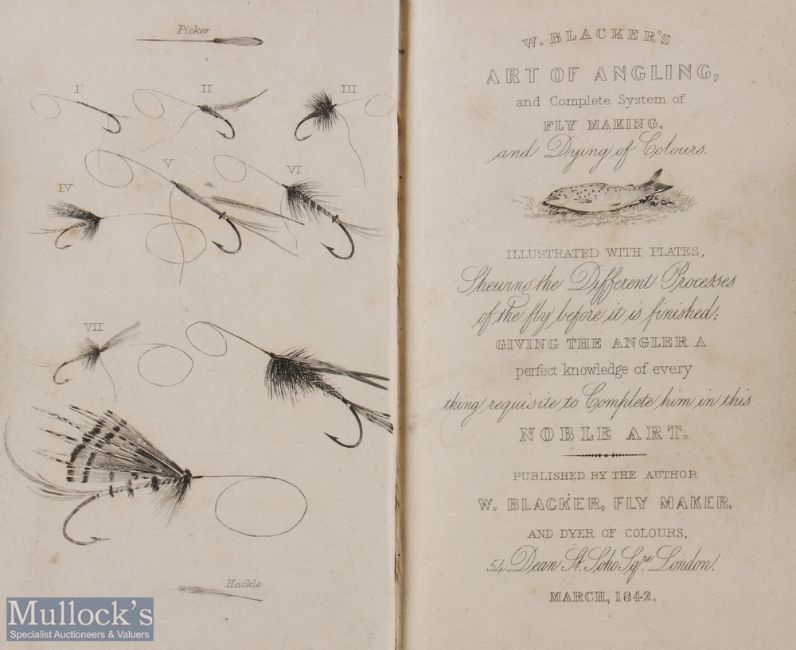 Picker
I
II
III
IV
V
VI
VII
Hackle
W. BLACKER'S
ART OF ANGLING,
and Complete System of
FLY MAKING,
and Dying of Colours.
ILLUSTRATED WITH PLATES,
Shewing the Different Processes
of the fly before it is finished;
GIVING THE ANGLER A
perfect knowledge of every
thing requisite to Complete him in this
NOBLE ART.
PUBLISHED BY THE AUTHOR
W. BLACKER, FLY MAKER,
AND DYER OF COLOURS,
54 Dean St. Soho Sqre. London.
MARCH, 1842.
Mullock's
Specialist Auctioneers & Valuers